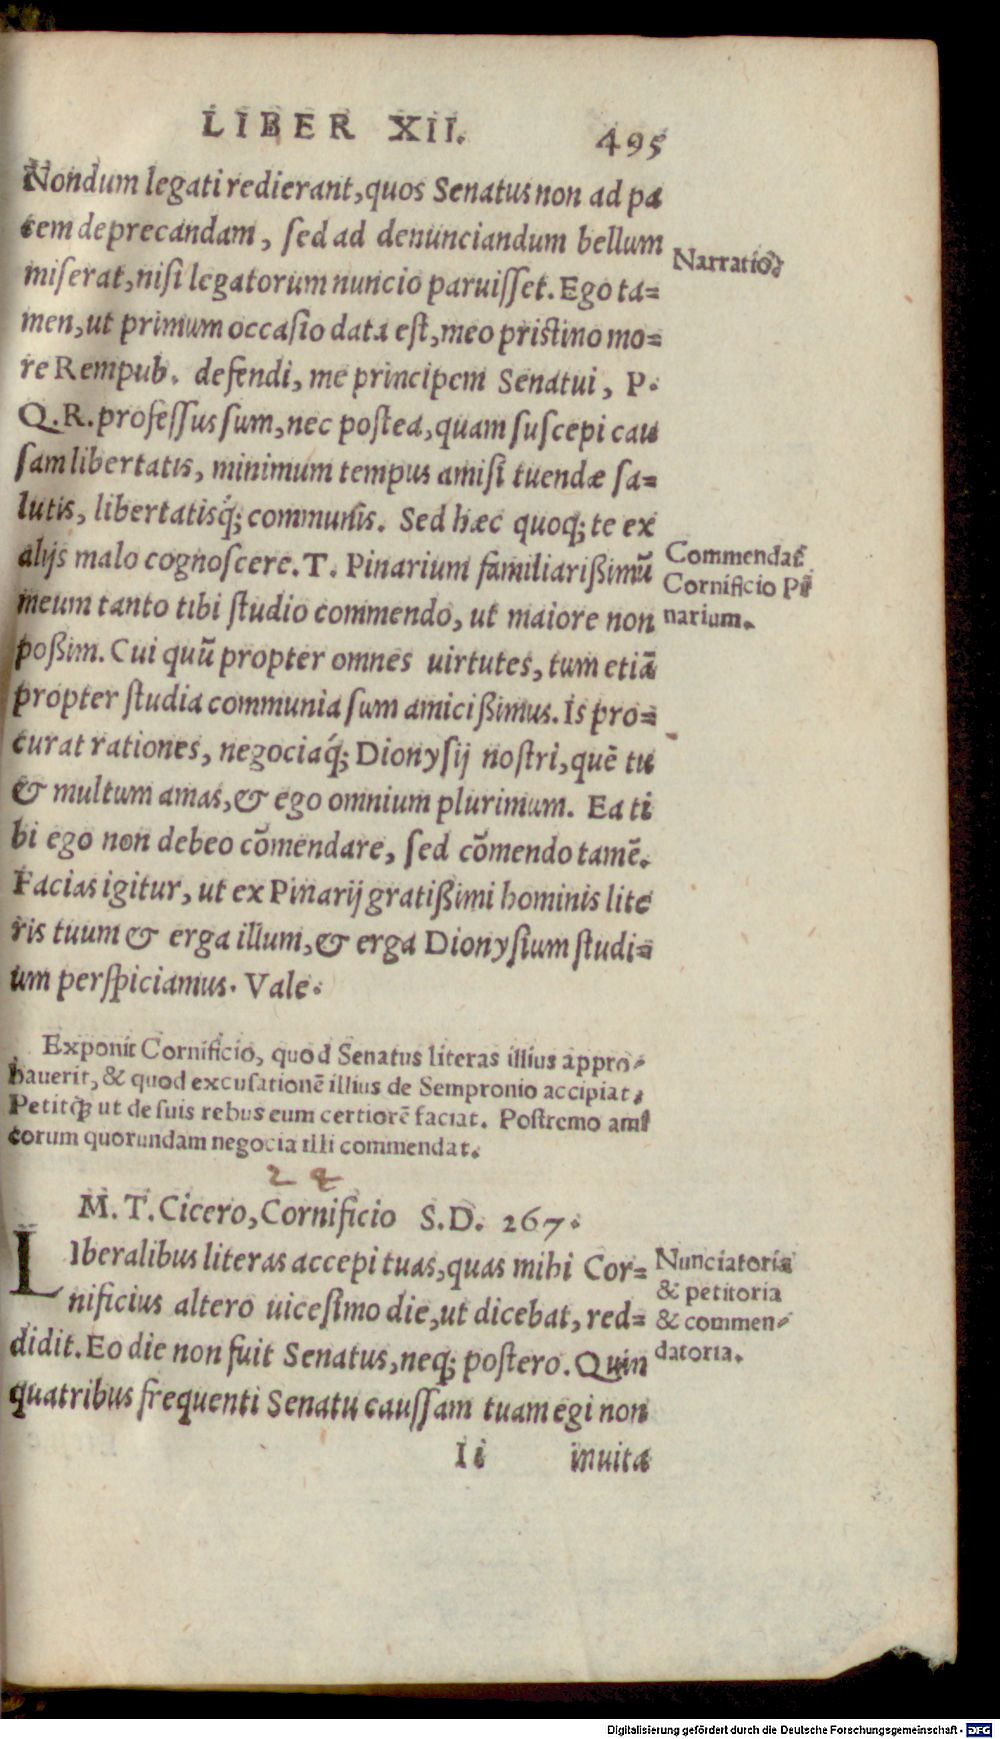 LIBER XII. 495
Nondum legati redierant, quos Senatus non ad pa
cem deprecandam, sed ad denunciandum bellum
miserat, nisi legatorum nuncio paruisset. Ego ta=
men, ut primum occasio data est, meo pristino mo=
re Rempub. defendi, me principem Senatui, P.
Q. R. professus sum, nec postea, quam suscepi cau
sam libertatis, minimum tempus amisi tuendæ sa=
lutis, libertatisq́; communis. Sed hæc quoq; te ex
alijs malo cognoscere. T. Pinarium familiarißimũ
meum tanto tibi studio commendo, ut maiore non
poßim. Cui quũ propter omnes uirtutes, tum etiã
propter studia communia sum amicißimus. Is pro=
curat rationes, negociaq́; Dionysij nostri, quẽ tu
& multum amas, & ego omnium plurimum. Ea ti
bi ego non debeo cõmendare, sed cõmendo tamẽ.
Facias igitur, ut ex Pinarij gratißimi hominis lite
ris tuum & erga illum, & erga Dionysium studi=
um perspiciamus. Vale.
Narratio.
Commendat
Cornificio Pi
narium.
Exponit Cornificio, quod Senatus literas illius appro-
bauerit, & quod excusationẽ illius de Sempronio accipiat.
Petitq́; ut de suis rebus eum certiorẽ faciat. Postremo ami
corum quorundam negocia illi commendat.
M. T. Cicero, Cornificio S. D. 267.
LIberalibus literas accepi tuas, quas mihi Cor=
nificius altero uicesimo die, ut dicebat, red=
didit. Eo die non fuit Senatus, neq; postero. Quin
quatribus frequenti Senatu caussam tuam egi non
Nunciatoria
& petitoria
& commen-
datoria.
Ii inuita
Digitalisierung gefördert durch die Deutsche Forschungsgemeinschaft - DFG